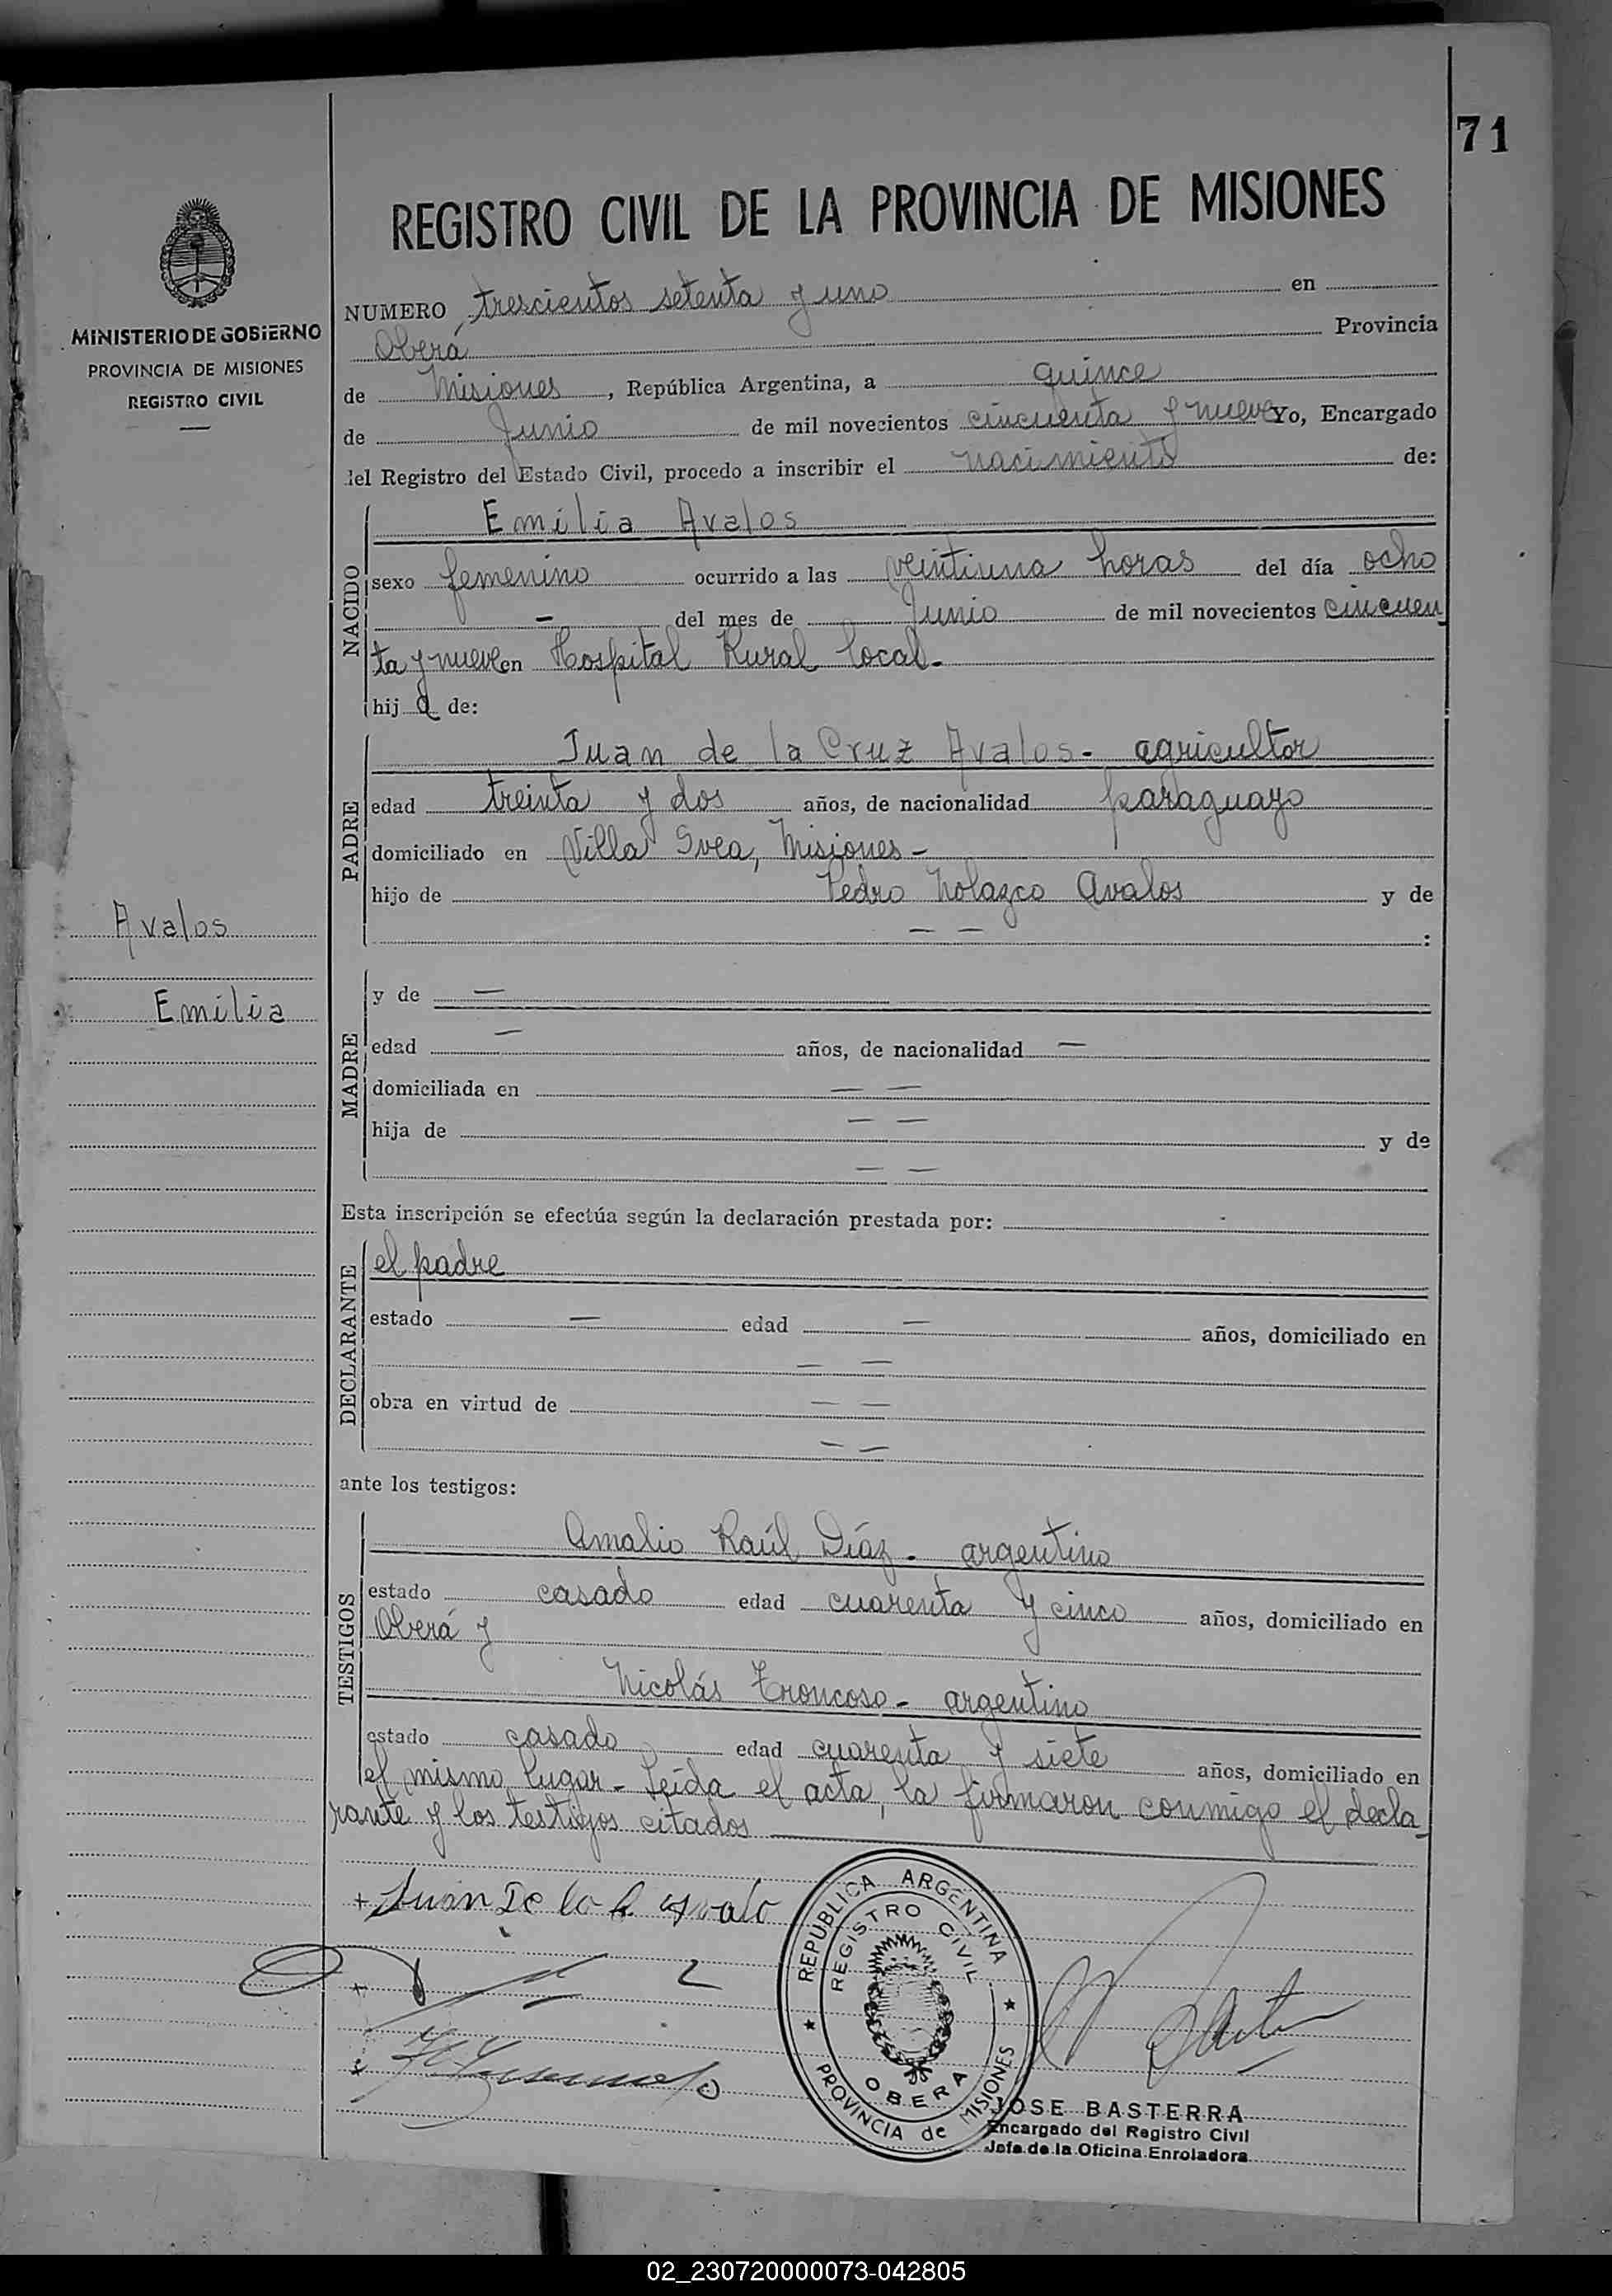 71
REGISTRO CIVIL DE LA PROVINCIA DE MISIONES
MINISTERIO DE GOBIERNO
PROVINCIA DE MISIONES
REGISTRO CIVIL
NUMERO trescientos setenta y uno en
Oberá Provincia
de Misiones, República Argentina, a quince
de Junio de mil novecientos cincuenta y nueve Yo, Encargado
del Registro del Estado Civil, procedo a inscribir el nacimiento de:
NACIDO
Emilia Avalos
sexo femenino ocurrido a las veintiuna horas del día ocho
— del mes de Junio de mil novecientos cincuen
ta y nueve en Hospital Rural local.-
hij a de:
PADRE
Juan de la Cruz Avalos - agricultor
edad treinta y dos años, de nacionalidad paraguayo
domiciliado en Villa Svea, Misiones -
hijo de Pedro Nolazco Avalos y de
— — :
Avalos
Emilia
MADRE
y de —
edad — años, de nacionalidad —
domiciliada en — —
hija de — — y de
— —
Esta inscripción se efectúa según la declaración prestada por:
DECLARANTE
el padre
estado — edad — años, domiciliado en
— —
obra en virtud de — —
— —
ante los testigos:
TESTIGOS
Amalio Raúl Díaz - argentino
estado casado edad cuarenta y cinco años, domiciliado en
Oberá y
Nicolás Troncoso - argentino
estado casado edad cuarenta y siete años, domiciliado en
el mismo lugar - Leída el acta, la firmaron conmigo el decla
rante y los testigos citados
+ Juan De la C Avalo
REPUBLICA ARGENTINA
REGISTRO CIVIL
OBERA
PROVINCIA de MISIONES
JOSE BASTERRA
Encargado del Registro Civil
Jefe de la Oficina Enroladora
02_230720000073-042805